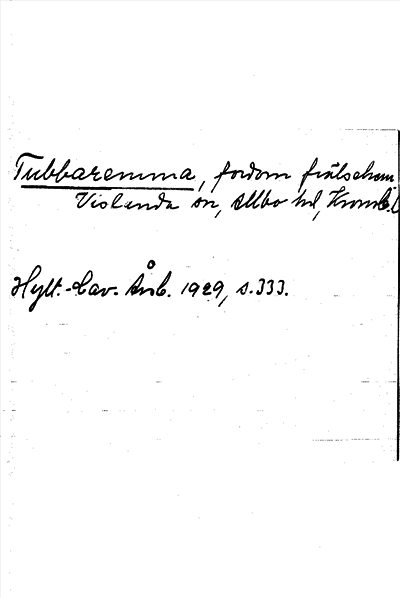 Tubbaremma, fordom frälsehem
Vislanda sn, Allbo hd, Kronob. l
Hylt.-Cav. Årsb. 1929, s. 333.